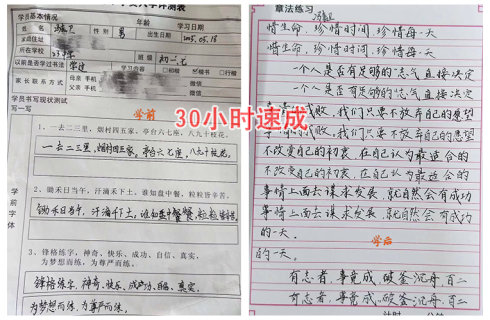 学员基本情况
年龄
学习日期
姓名
性别
男
出生日期
2005.05.18
家庭住址
所在学校
班级
初一
以前是否学过书法
学过
学习内容
楷书
行楷
行书
家长联系方式
母亲 手机
微信
父亲 手机
微信
学员书写现状测试
写一写
学前
30小时速成
1、一去二三里，烟村四五家，亭台六七座，八九十枝花。
一去二三里，烟村四五家，亭台六七座，八九十枝花。
学前字体
2、锄禾日当午，汗滴禾下土，谁知盘中餐，粒粒皆辛苦。
锄禾日当午，汗滴禾下土，谁知盘中餐，粒粒皆辛苦。
3、锋格练字，神奇、快乐、成功、自信、真实，
为梦想而练，为尊严而练。
锋格练字，神奇、快乐、成功、自信、真实，
为梦想而练，为尊严而练。
章法练习
惜生命，珍惜时间，珍惜每一天
惜生命，珍惜时间，珍惜每一天
一个人是否有足够的志气直接决定
一个人是否有足够的志气直接决定
成败，我们只要不放弃自己的愿望
成败，我们只要不放弃自己的愿望
不改变自己的初衷，在自己认为最适合的
不改变自己的初衷，在自己认为最适合的
事情上面去谋求发展，就自然会有成功
事情上面去谋求发展，就自然会有成功
的一天。
学后
的一天。
有志者，事竟成，破釜沉舟，百二
有志者，事竟成，破釜沉舟，百二